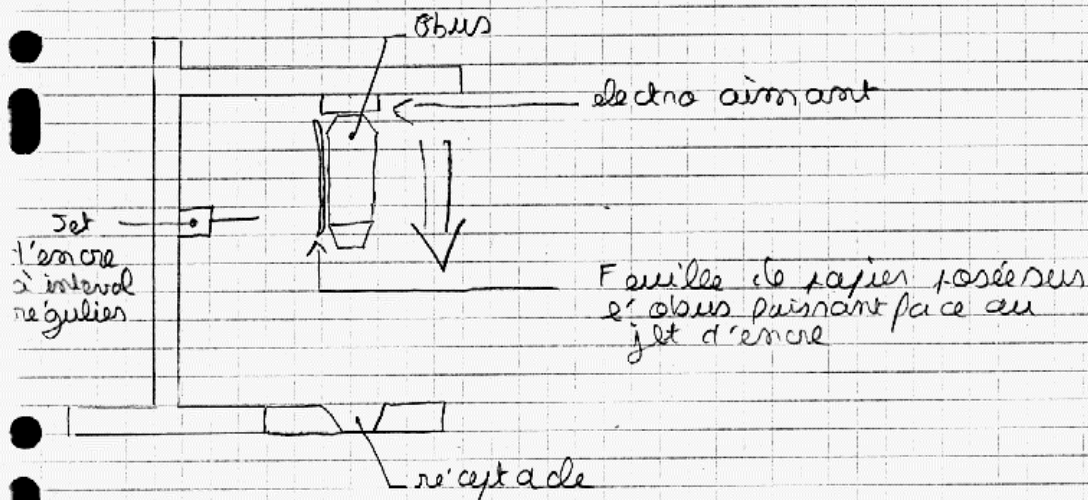 Obus
electro aimant
Jet
d'encre
à interval
régulier
Feuille de papier posée sur
l'obus puissant face au
jet d'encre
réceptacle